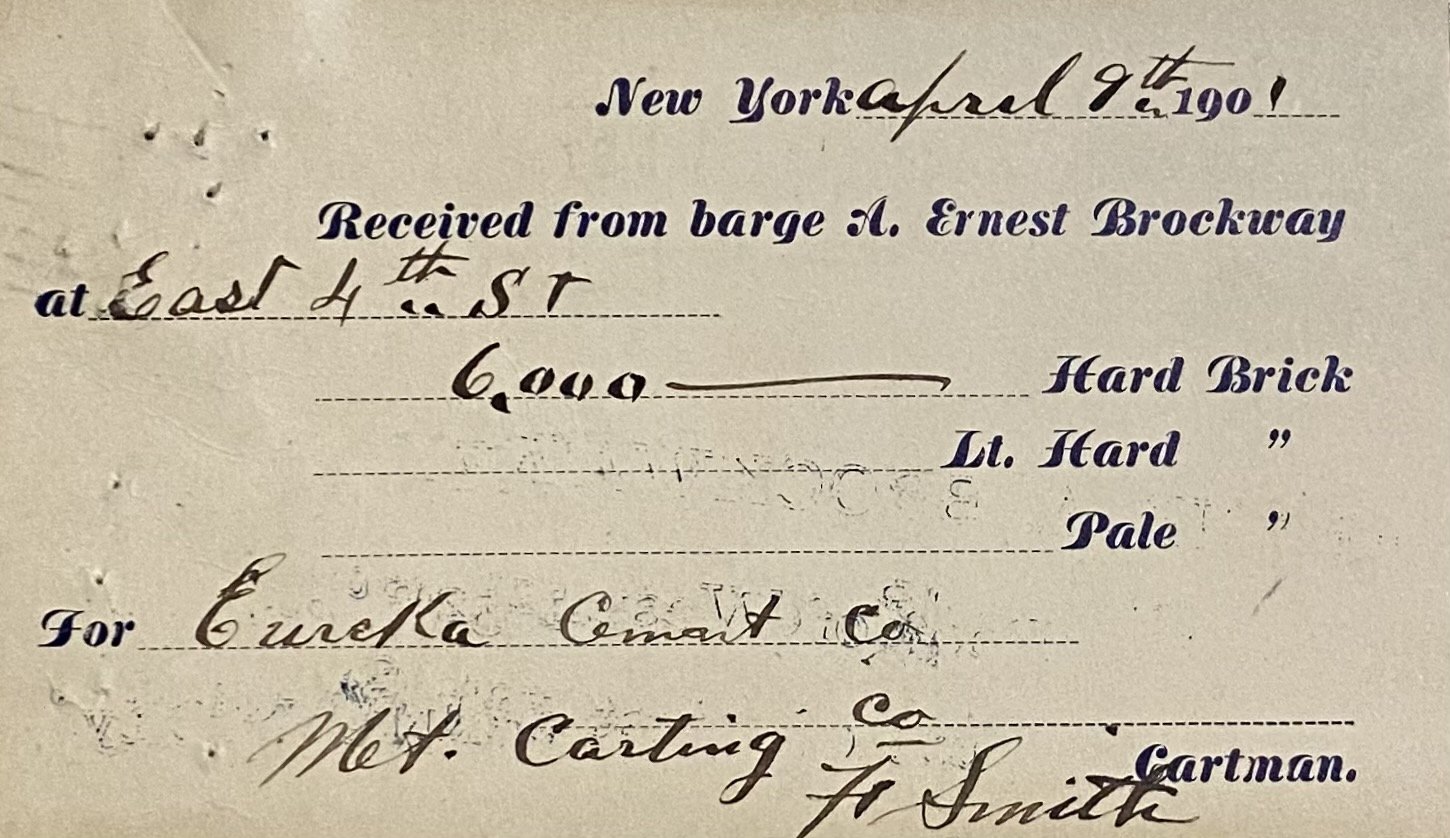 New York april 9th 1901
Received from barge A. Ernest Brockway
at East 4th St
6,000 Hard Brick
Lt. Hard "
Pale "
For Eureka Cement Co
Met. Carting Co
Cartman.
Smith